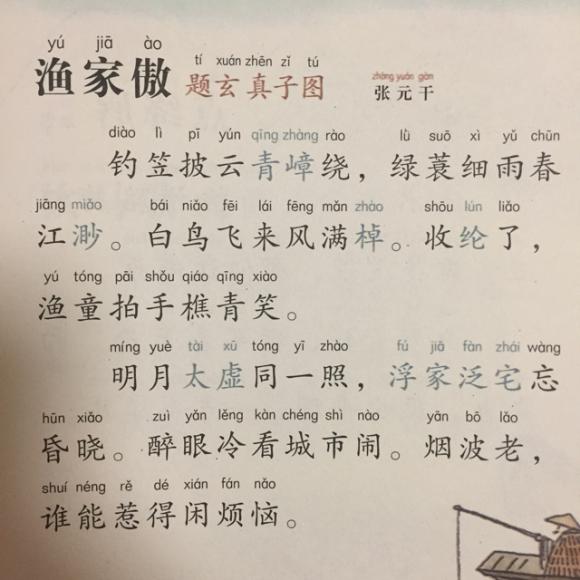 yú jiā ào
渔家傲
tí xuán zhēn zǐ tú
题玄真子图
zhāng yuán gàn
张元干
diào lì pī yún qīng zhàng rào lǜ suō xì yǔ chūn
钓笠披云青嶂绕，绿蓑细雨春
jiāng miǎo bái niǎo fēi lái fēng mǎn zhào shōu lún liǎo
江渺。白鸟飞来风满棹。收纶了，
yú tóng pāi shǒu qiáo qīng xiào
渔童拍手樵青笑。
míng yuè tài xū tóng yī zhào fú jiā fàn zhái wàng
明月太虚同一照，浮家泛宅忘
hūn xiǎo zuì yǎn lěng kàn chéng shì nào yān bō lǎo
昏晓。醉眼冷看城市闹。烟波老，
shuí néng rě dé xián fán nǎo
谁能惹得闲烦恼。